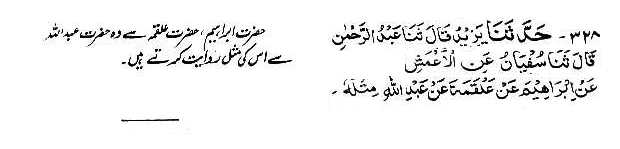 ۳۲۸ - حَدَّ ثَنَا يَزِيْدُ قَالَ ثَنَا عَبْدُ الرَّحْمٰنِ
قَالَ ثَنَا سُفْيَانُ عَنِ الْأَعْمَشِ
عَنْ اِبْرَاهِيْمَ عَنْ عَلْقَمَةَ عَنْ عَبْدِ اللّٰهِ مِثْلَهٗ ۔
حضرت ابراہیم، حضرت علقمہ سے وہ حضرت عبداللہ
سے اس کی مثل روایت کرتے ہیں۔